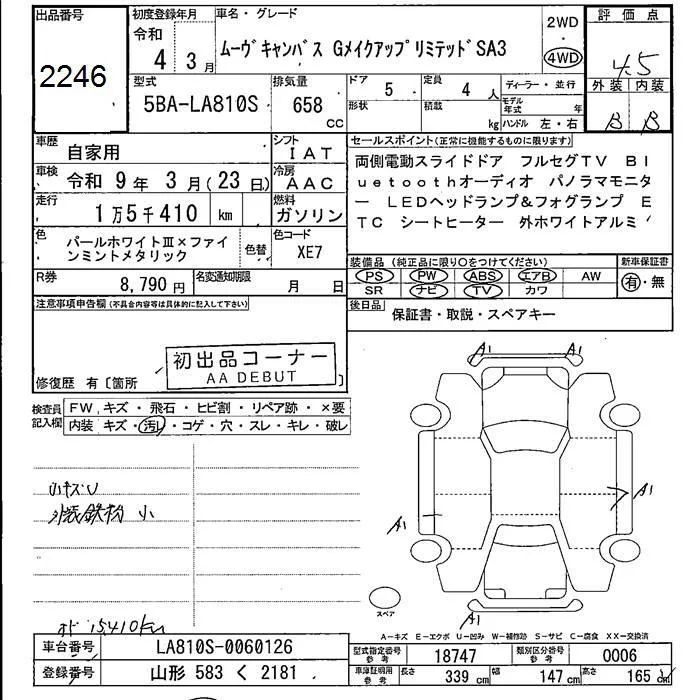 出品番号
2246
初度登録年月
令和
4年3月
車名・グレード
ムーヴキャンバス GメイクアップリミテッドSA3
2WD
・
4WD
評価点
4.5
外装 内装
B B
型式
5BA-LA810S
排気量
658
CC
ドア 5
形状
定員 4人
積載 kg
ディーラー・並行
モデル年式 年
ハンドル 左・右
車歴
自家用
シフト
IAT
車検
令和 9年 3月(23日)
冷房
AAC
走行
1万5千410 km
燃料
ガソリン
色
パールホワイトⅢ×ファインミントメタリック
色替
色コード
XE7
R券
8,790円
名変通知期限
月 日
セールスポイント(正常に機能するものに限ります)
両側電動スライドドア フルセグTV Bl
uetoothオーディオ パノラマモニタ
ー LEDヘッドランプ&フォグランプ E
TC シートヒーター 外ホワイトアルミ
装備品(純正品に限り○をつけてください)
PS PW ABS エアB AW
SR ナビ TV カワ
新車保証書
有・無
後日品
保証書・取説・スペアキー
注意事項申告欄(不具合内容等は具体的に記入して下さい)
初出品コーナー
AA DEBUT
修復歴 有〔箇所 〕
検査員記入欄
FW. キズ・飛石・ヒビ割・リペア跡・×要
内装 キズ・汚レ・コゲ・穴・スレ・キレ・破レ
小キズU
外装鉄粉 小
オド 15410km
A1
A1
A1
A1
A1
スペア
A-キズ E-エクボ U-凹み W-補修跡 S-サビ C-腐食 XX-交換済
車台番号
LA810S-0060126
登録番号
山形 583 く 2181
型式指定番号
参考
18747
類別区分番号
参考
0006
車庫証明用
参考
長さ 339cm
幅 147cm
高さ 165cm